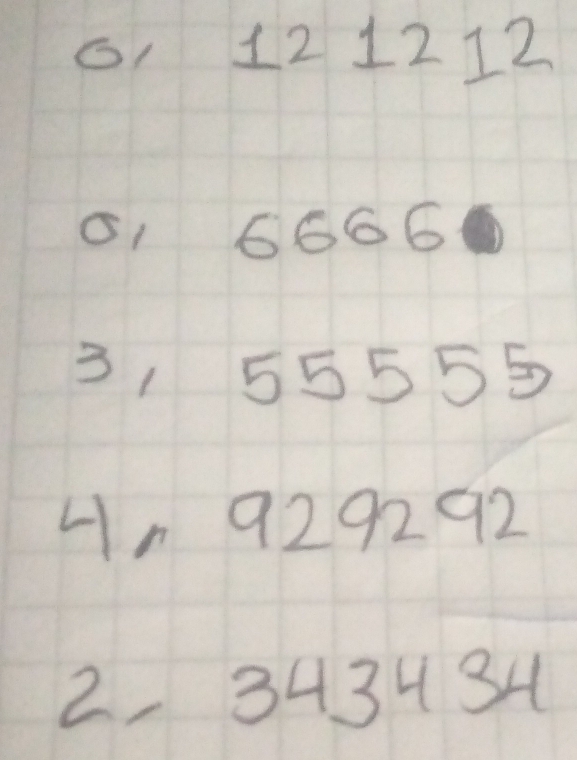 0, 12 12 12
0, 6666
3, 55555
4, 929292
2, 343434